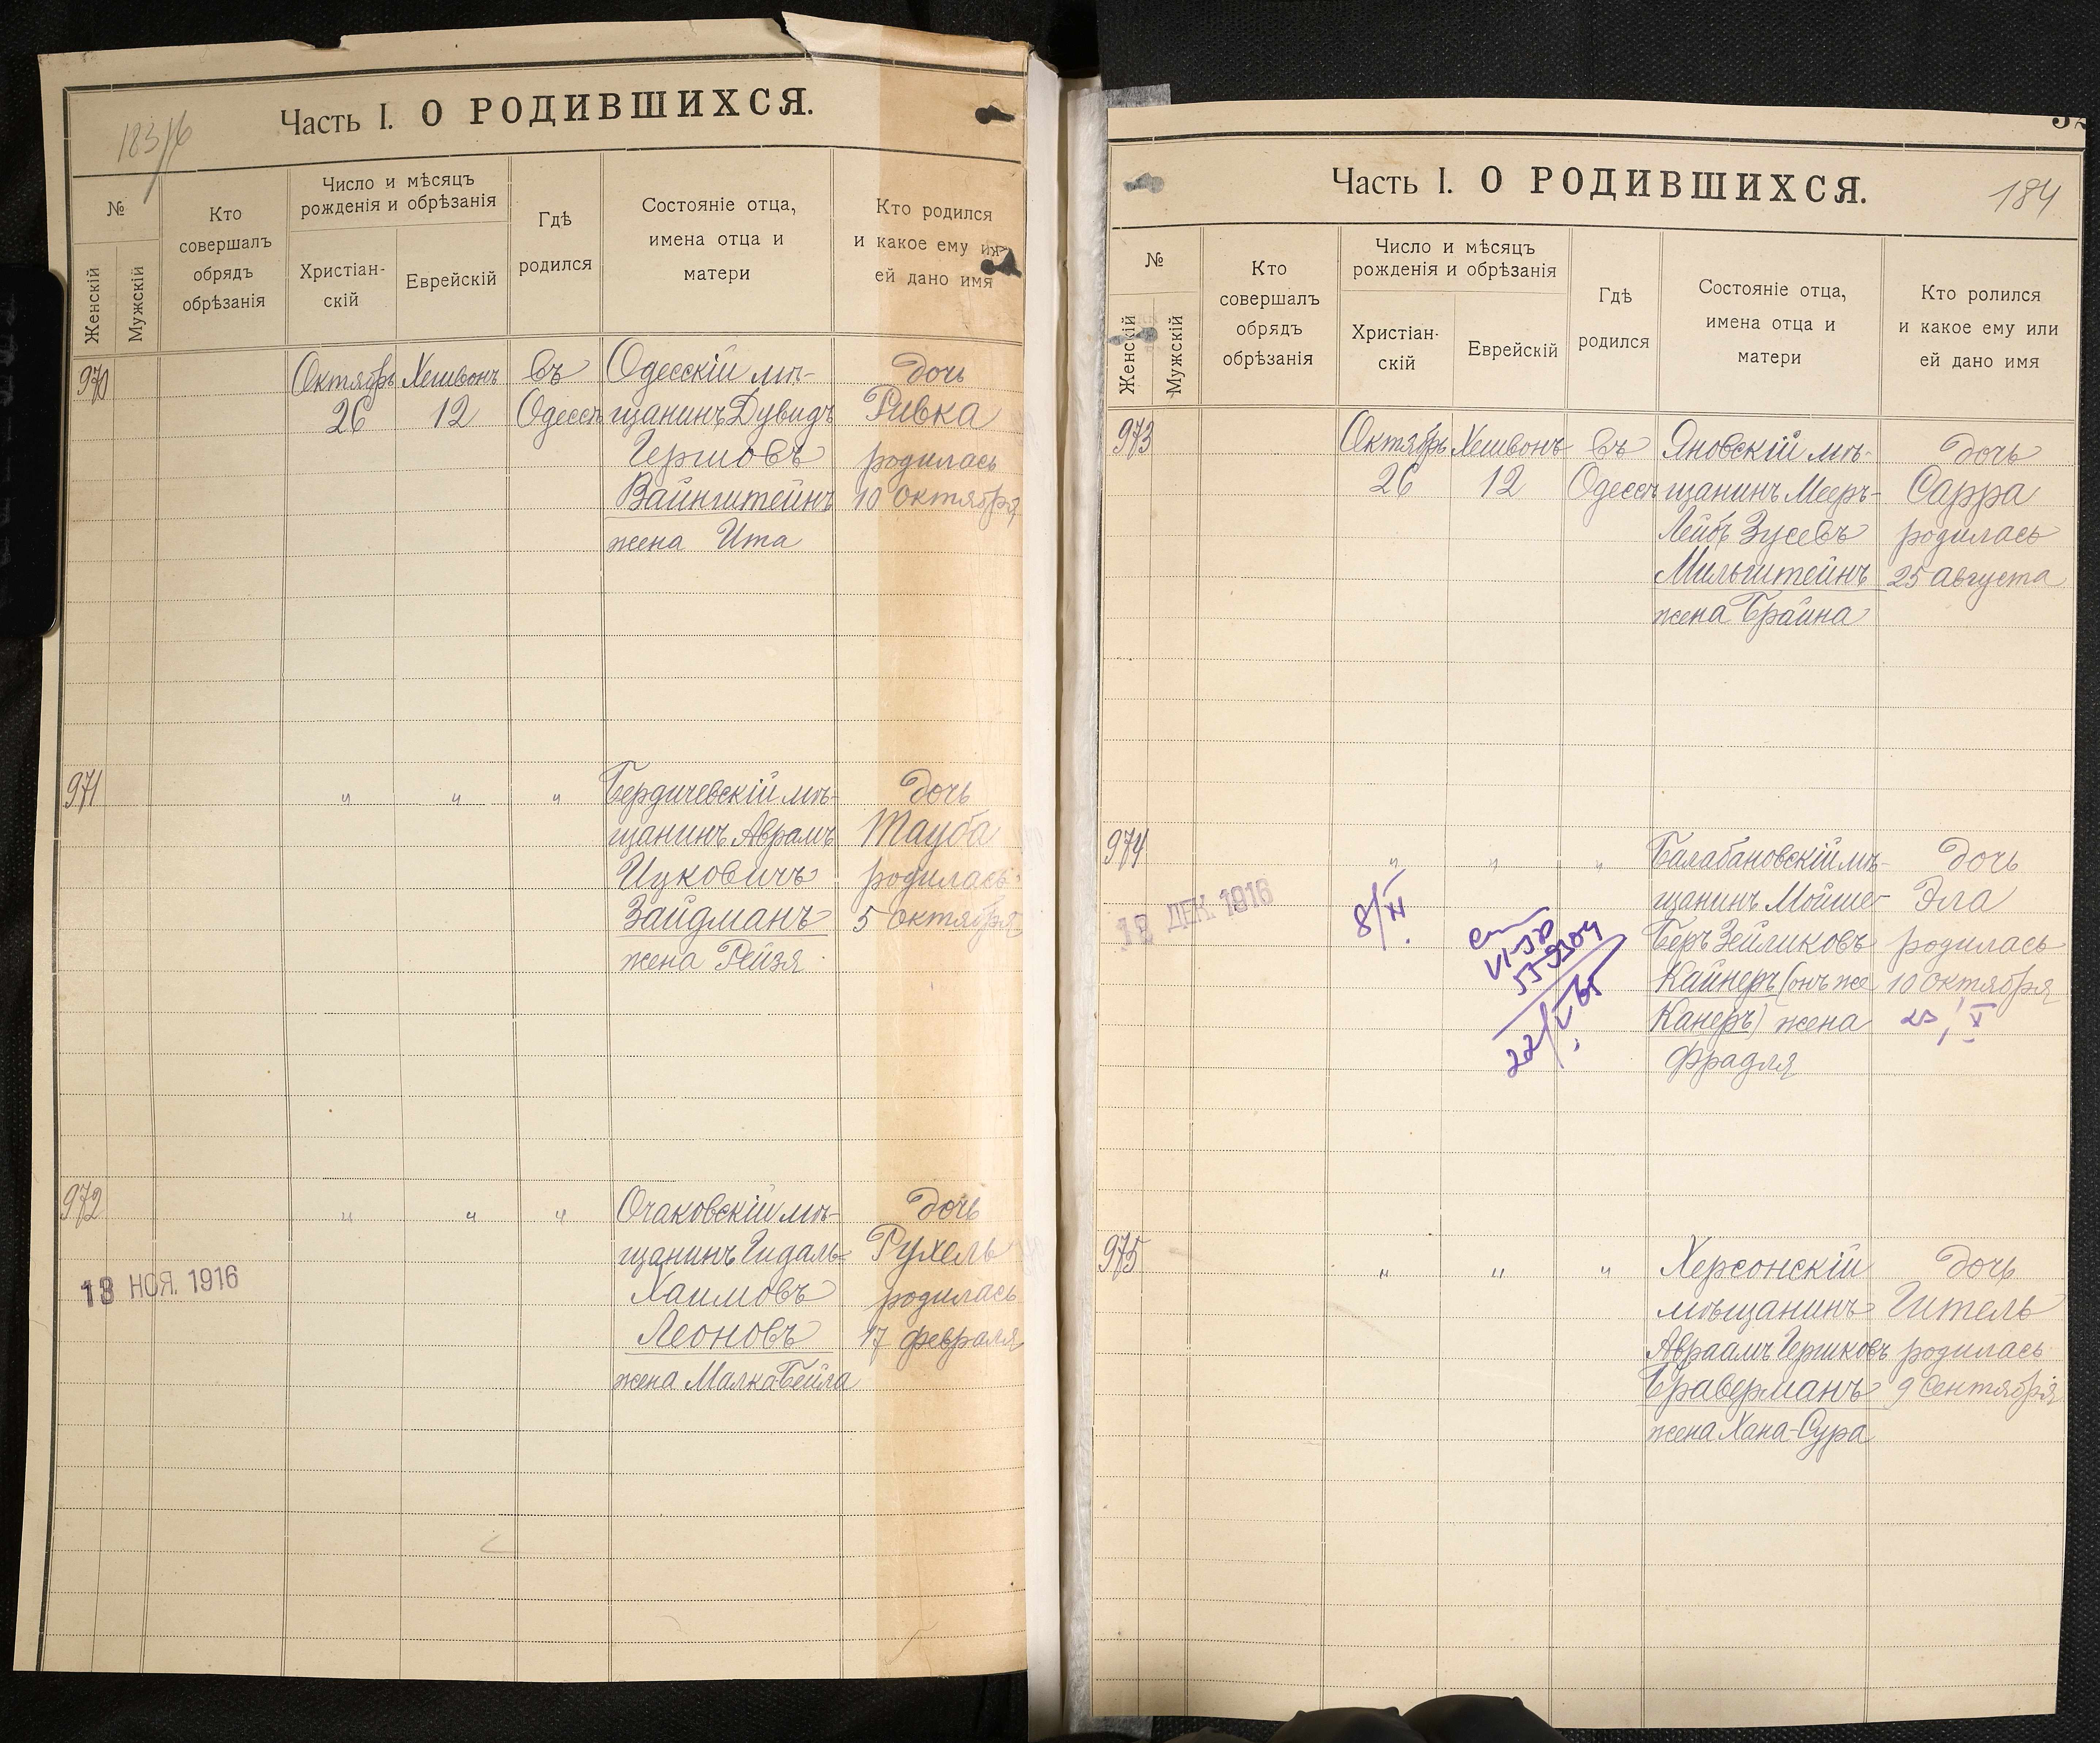 183/б
Часть I. О РОДИВШИХСЯ.
№
Женскій
Мужскій
Кто
совершалъ
обрядъ
обрѣзанія
Число и мѣсяцъ
рожденія и обрѣзанія
Христіан-
скій
Еврейскій
Гдѣ
родился
Состояніе отца,
имена отца и
матери
Кто родился
и какое ему или
ей дано имя
970
Октябрь Хешвонъ въ Одесскій мѣ- дочь
26 12 Одессѣ щанинъ Дувидъ Ривка
Гершовъ родилась
Вайнштейнъ 10 октября
жена Ита
971
" " " Бердичевскій мѣ- дочь
щанинъ Аврамъ Тауба
Ицковичъ родилась
Зайдманъ 5 октября
жена Рейзя
972
" " " Очаковскій мѣ- дочь
щанинъ Гидаль- Рухель
13 НОЯ. 1916
Хаимовъ родилась
Леоновъ 17 февраля
жена Малка Бейла
184
Часть I. О РОДИВШИХСЯ.
№
Женскій
Мужскій
Кто
совершалъ
обрядъ
обрѣзанія
Число и мѣсяцъ
рожденія и обрѣзанія
Христіан-
скій
Еврейскій
Гдѣ
родился
Состояніе отца,
имена отца и
матери
Кто ролился
и какое ему или
ей дано имя
973
Октябрь Хешвонъ въ Яновскій мѣ- дочь
26 12 Одессѣ щанинъ Мееръ- Сарра
Лейбъ Зусевъ родилась
Мильштейнъ 25 августа
жена Брайна
974
" " " Балабановскій мѣ- дочь
щанинъ Мойше- Эла
12 ДЕК. 1916
8/XI.
Беръ Зейликовъ родилась
Кайнеръ (онъ же 10 октября
Канеръ) жена 23/X
Фрадля
VI-ЮЯ
22/V 65
975
" " " Херсонскій дочь
мѣщанинъ Гитель
Авраамъ Гершковъ родилась
Браверманъ 9 сентября
жена Хана-Сура